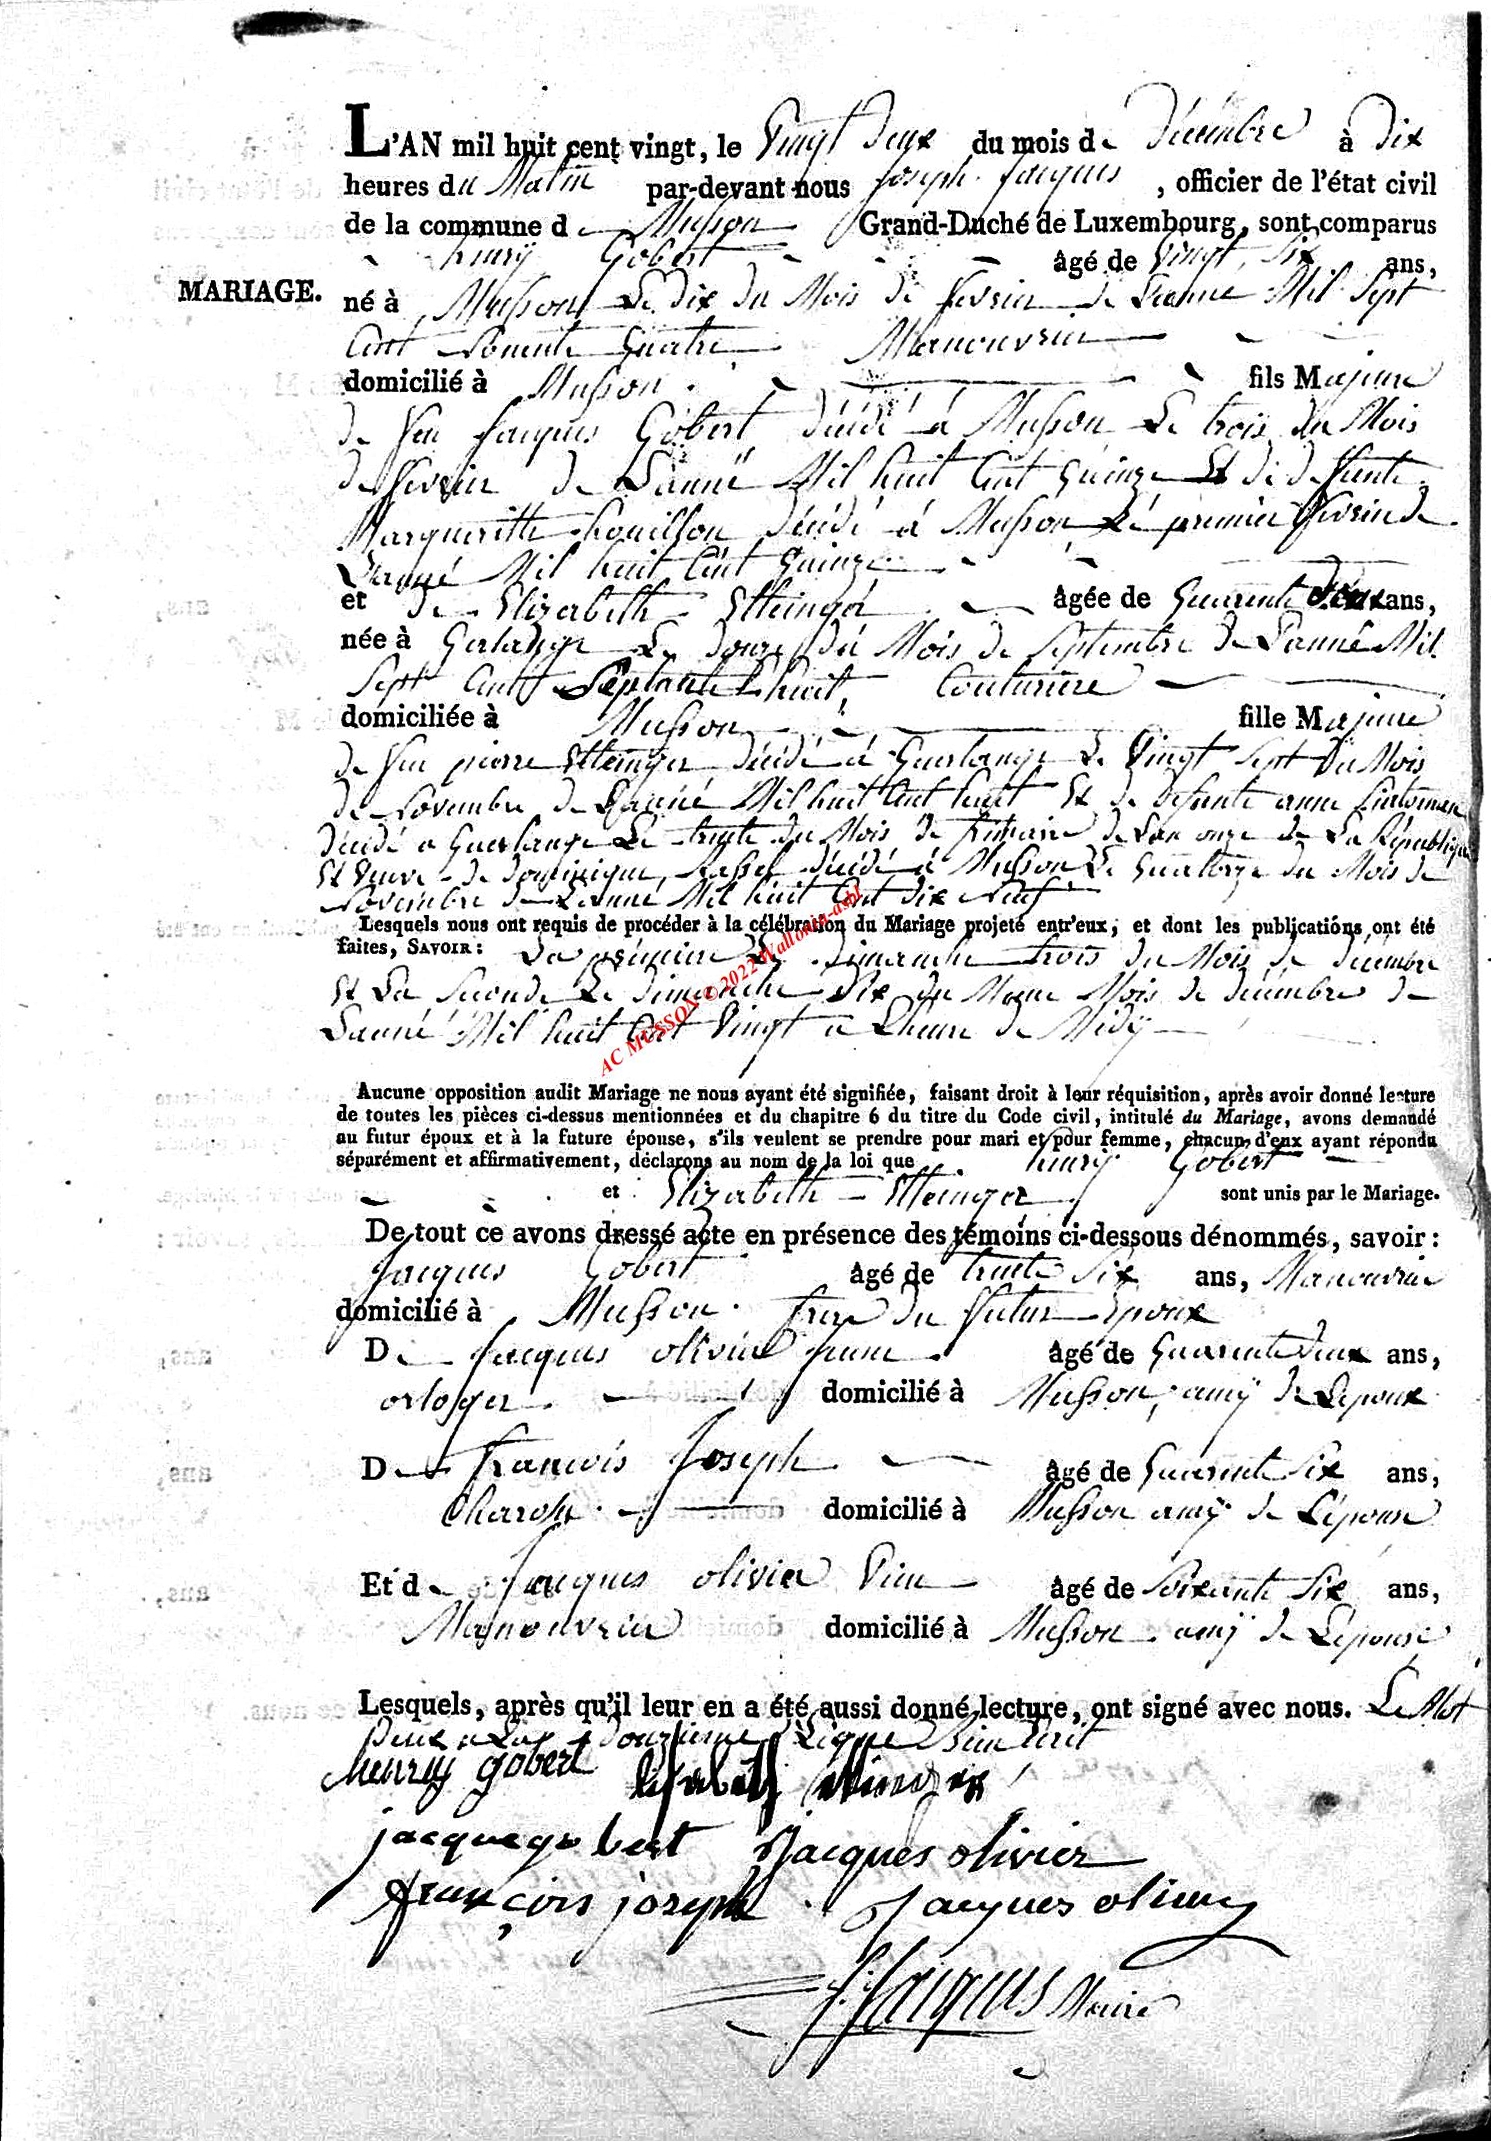 L'AN mil huit cent vingt, le Vingt Deux du mois de Décembre à Dix
heures du Matin par-devant nous Joseph Jacques, officier de l'état civil
de la commune de Musson Grand-Duché de Luxembourg, sont comparus
henry Gobert âgé de Vingt Six ans,
MARIAGE.
né à Musson Le Dix du Mois de fevrier de L'anne Mil Sept
Cent Nonente Quatre Manouvrier
domicilié à Musson fils Majeure
de feu Jacques Gobert décédé à Musson Le trois du Mois
de fevrier de L'année Mil huit Cent Quinze Et de defunte
Margueritte décédé à Musson Le premier fevrier de
L'anné Mil huit Cent Quinze
et de Elizabeth Etteinger âgée de Quarente Deux ans,
née à Gerlange Le Douze du Mois de Septembre de L'anné Mil
Sept Cent Septante huit, Couturiere
domiciliée à Musson fille Majeure
de feu pierre Etteinger décédé à Guerlange Le Vingt Sept du Mois
de Novembre de L'anné Mil huit Cent huit Et de Defunte anne
décédé a Guerlange Le trente du Mois de frimaire de L'an onze de La République
Et Veuve de dominique décédé à Musson Le Quatorze du Mois de
Novembre de L'anné Mil huit Cent Dix Neuf
Lesquels nous ont requis de procéder à la célébration du Mariage projeté entr'eux, et dont les publications ont été
faites, SAVOIR: La première Le Dimanche trois du Mois de décembre
Et La Seconde Le Dimanche Dix du Meme Mois de décembre de
L'anné Mil huit Cent Vingt a L'heure de Midy
AC MUSSON © 2022 Wallonia-asbl
Aucune opposition audit Mariage ne nous ayant été signifiée, faisant droit à leur réquisition, après avoir donné lecture
de toutes les pièces ci-dessus mentionnées et du chapitre 6 du titre du Code civil, intitulé du Mariage, avons demandé
au futur époux et à la future épouse, s'ils veulent se prendre pour mari et pour femme, chacun d'eux ayant répondu
séparément et affirmativement, déclarons au nom de la loi que henry Gobert
et Elizabeth Etteinger sont unis par le Mariage.
De tout ce avons dressé acte en présence des témoins ci-dessous dénommés, savoir:
Jacques Gobert âgé de trente Six ans, Manouvrier
domicilié à Musson frere du futur Epoux
De Jacques olivier Jeune âgé de Quarente Deux ans,
orloger domicilié à Musson, amy de L'epoux
De François Joseph âgé de Quarente Six ans,
Charon domicilié à Musson amy de L'épouse
Et de Jacques olivier Vieu âgé de Soixante Six ans,
Manouvrier domicilié à Musson amy de L'epouse
Lesquels, après qu'il leur en a été aussi donné lecture, ont signé avec nous. Le Mot
Deux a La Douzieme Ligne
henry gobert
jacque gobert Jacques olivier
françois joseph Jacques olivier
J. Jacques Maire